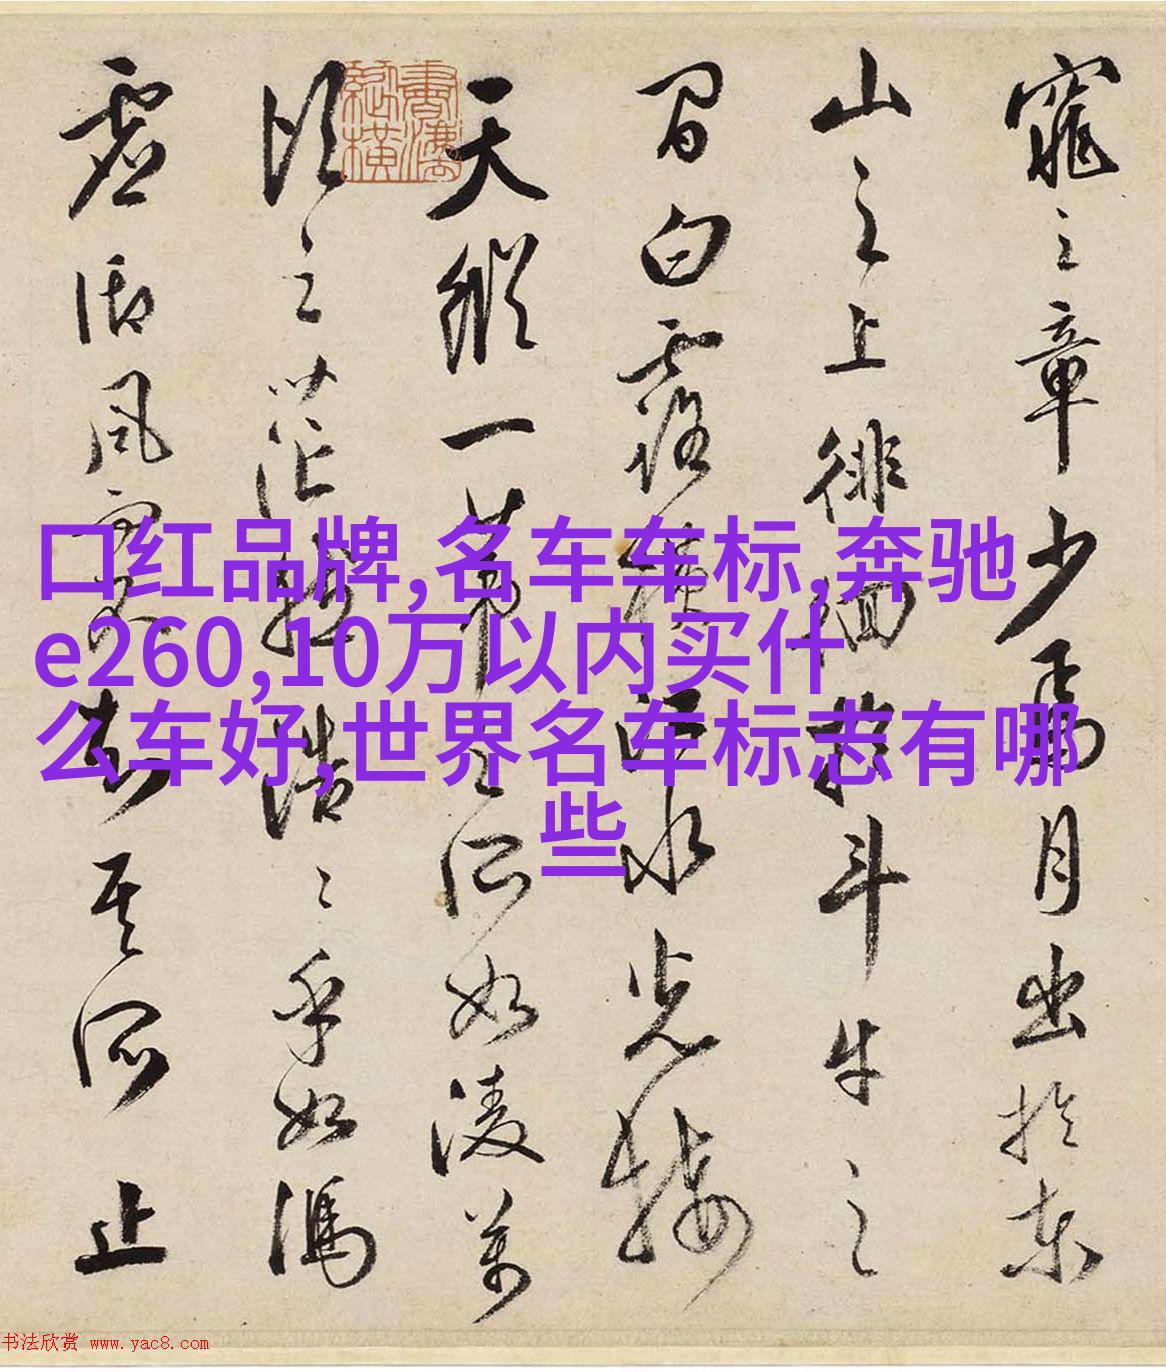 窕之章少焉月出於東
山之上徘徊於斗牛之
間白露橫江水光接
天縱一葦之所如凌萬
頃之茫然浩々乎如馮
虛御風而不知其所止
口红品牌,名车车标,奔驰
e260,10万以内买什
么车好,世界名车标志有哪
些
书法欣赏 www.yac8.com